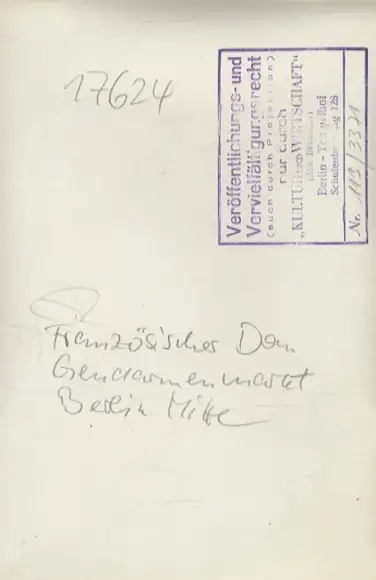 17624
Veröffentlichungs- und
Vervielfältigungsrecht
(auch durch Projektion)
nur durch
„KULTUR UND WIRTSCHAFT"
Berlin-Tempelhof
128
Nr. 119/3371
Französischer Dom
Gendarmenmarkt
Berlin Mitte